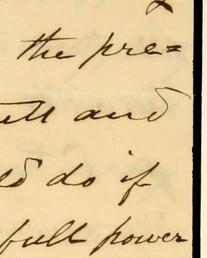 the pre=
and
do if
full power